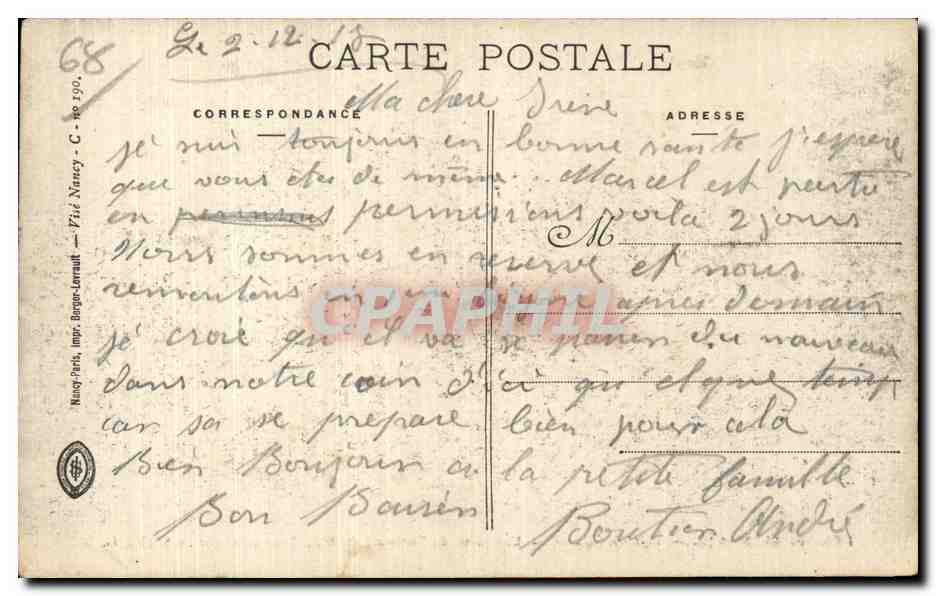 68
Le 2-12-15
CARTE POSTALE
CORRESPONDANCE
ADRESSE
Ma chere Irene
je suis toujours en bonne sante j'espere
que vous etes de même. Marcel est partie
en permissions voila 2 jours
Nous sommes en reserve et nous
remontons en apres demain
je croie qu'il va se passer du nouveau
dans notre coin d'ici quelque temp
car sa se prepare bien pour ala
Bien Bonjour a la petite famille.
Bon Baisér
André
M
CPAPHIL
Nancy-Paris, Impr. Berger-Levrault — Visé Nancy - C - nº 190.